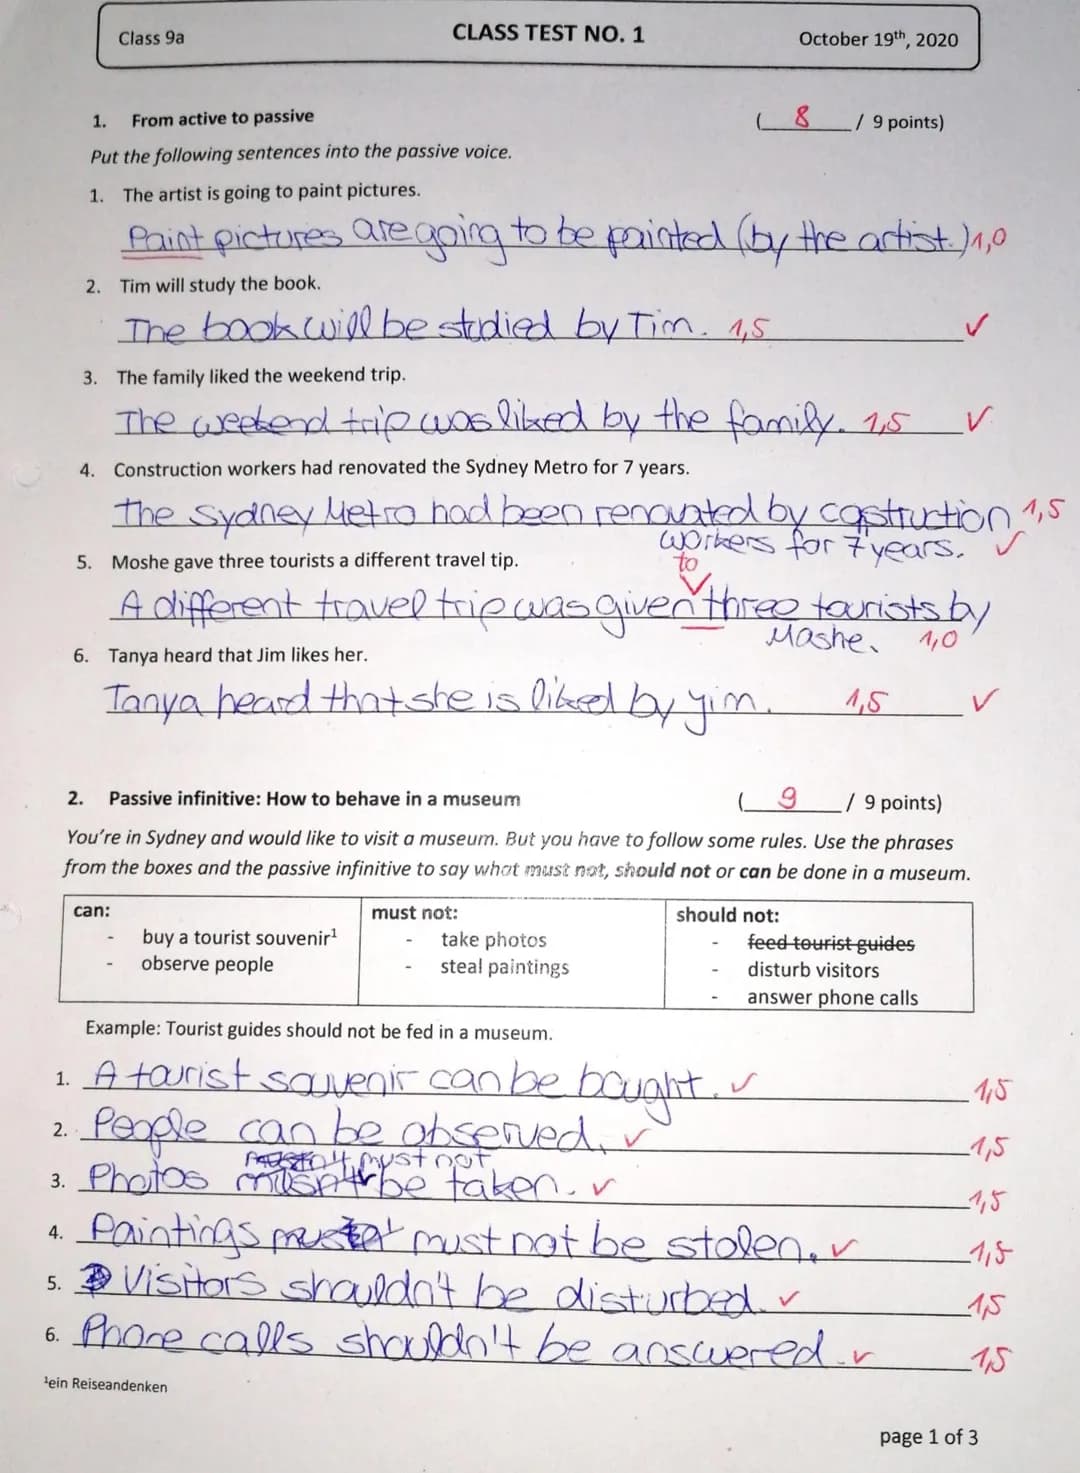 Class 9a CLASS TEST NO. 1 October 19th, 2020
1. From active to passive ( 8 / 9 points)
Put the following sentences into the passive voice.
1. The artist is going to paint pictures.
Paint pictures are going to be painted (by the artist.) 1,0
2. Tim will study the book.
The book will be studied by Tim. 1,5 ✓
3. The family liked the weekend trip.
The weekend trip was liked by the family. 1,5 ✓
4. Construction workers had renovated the Sydney Metro for 7 years.
The Sydney Metro had been renovated by construction 1,5
workers for 7 years. ✓
5. Moshe gave three tourists a different travel tip.
to
A different travel trip was given three tourists by
Moshe. 1,0
6. Tanya heard that Jim likes her.
Tanya heard that she is liked by yim. 1,5 ✓
2. Passive infinitive: How to behave in a museum ( 9 / 9 points)
You're in Sydney and would like to visit a museum. But you have to follow some rules. Use the phrases
from the boxes and the passive infinitive to say what must not, should not or can be done in a museum.
can: must not: should not:
- buy a tourist souvenir¹ - take photos - feed tourist guides
- observe people - steal paintings - disturb visitors
- answer phone calls
Example: Tourist guides should not be fed in a museum.
1. A tourist souvenir can be bought. ✓ 1,5
2. People can be observed. ✓ 1,5
must not
3. Photos be taken. ✓ 1,5
4. Paintings must not be stolen. ✓ 1,5
5. Visitors shouldn't be disturbed. ✓ 1,5
6. Phone calls shouldn't be answered. ✓ 1,5
¹ein Reiseandenken
page 1 of 3